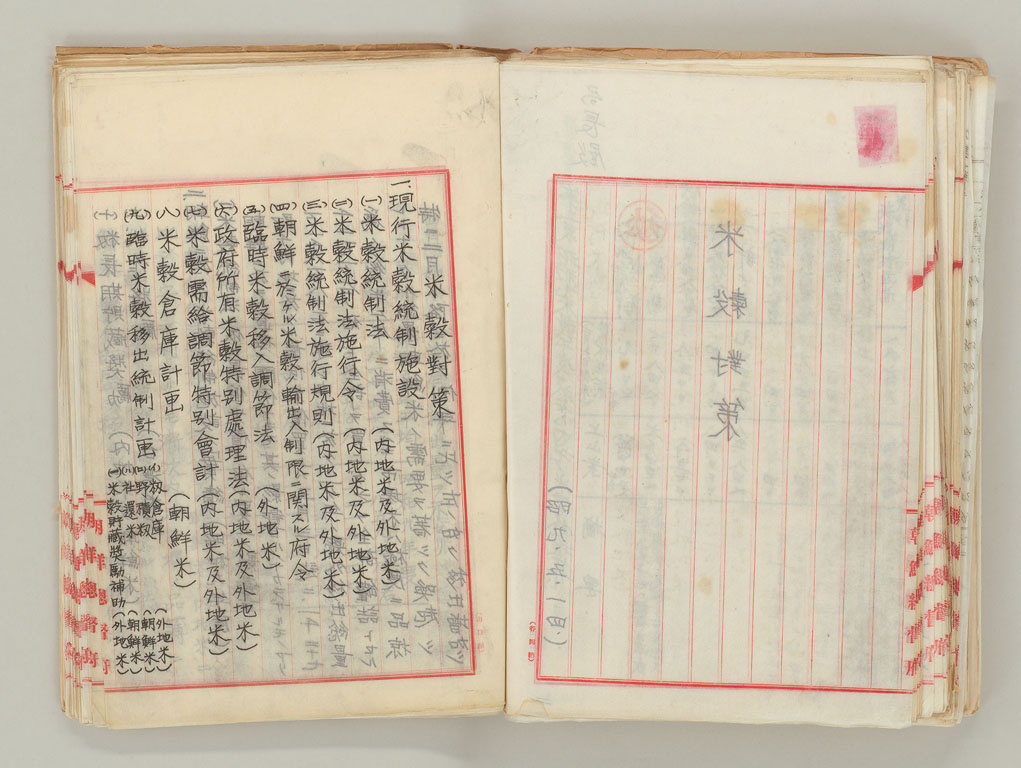 米穀對策
(昭九、五、一日、)
米穀對策
一、現行米穀統制施設
(一)米穀統制法 (内地米及外地米)
(二)米穀統制法施行令 (内地米及外地米)
(三)米穀統制法施行規則 (内地米及外地米)
(四)朝鮮ニ於ケル米穀ノ輸出入制限ニ関スル府令
(五)臨時米穀移入調節法 (外地米)
(六)政府所有米穀特別處理法 (内地米及外地米)
(七)米穀需給調節特別會計 (内地米及外地米)
(八)米穀倉庫計画 (朝鮮米)
(九)臨時米穀移出統制計画
(イ)籾倉庫 (外地米)
(ロ)野積籾 (朝鮮米)
(ハ)社還米 (朝鮮米)
(ニ)米穀貯藏奬勵補助 (外地米)
朝鮮總督府